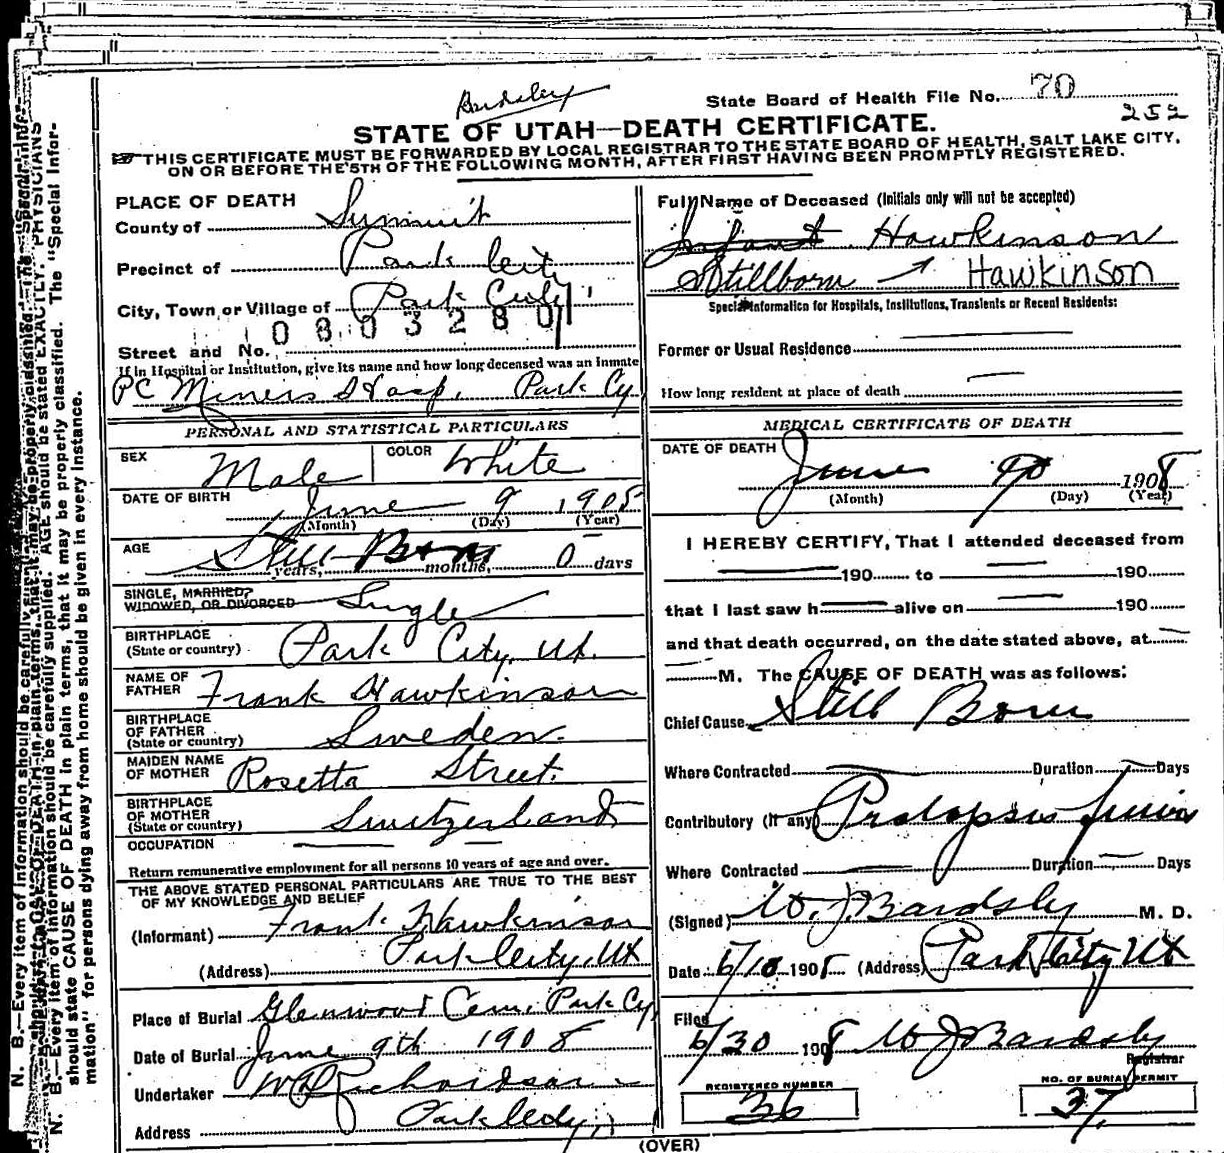 Bardsley
State Board of Health File No. 70
252
STATE OF UTAH—DEATH CERTIFICATE.
THIS CERTIFICATE MUST BE FORWARDED BY LOCAL REGISTRAR TO THE STATE BOARD OF HEALTH, SALT LAKE CITY,
ON OR BEFORE THE 5TH OF THE FOLLOWING MONTH, AFTER FIRST HAVING BEEN PROMPTLY REGISTERED.
PLACE OF DEATH
County of Summit
Precinct of Park City
City, Town or Village of Park City
0803280
Street and No.
If in Hospital or Institution, give its name and how long deceased was an inmate
PC Miners Hosp, Park Cy
PERSONAL AND STATISTICAL PARTICULARS
SEX Male COLOR White
DATE OF BIRTH June 9 1908
(Month) (Day) (Year)
AGE Still Born 0 days
years, months,
SINGLE, MARRIED?
WIDOWED, OR DIVORCED Single
BIRTHPLACE
(State or country) Park City, Ut.
NAME OF
FATHER Frank Hawkinson
BIRTHPLACE
OF FATHER
(State or country) Sweden.
MAIDEN NAME
OF MOTHER Rosetta Street.
BIRTHPLACE
OF MOTHER
(State or country) Switzerland
OCCUPATION
Return remunerative employment for all persons 10 years of age and over.
THE ABOVE STATED PERSONAL PARTICULARS ARE TRUE TO THE BEST
OF MY KNOWLEDGE AND BELIEF
(Informant) Frank Hawkinson
(Address) Park City, Ut
Place of Burial Glenwood Cem, Park Cy,
Date of Burial June 9th 1908
Undertaker Richardson
Address Park City,
Full Name of Deceased (Initials only will not be accepted)
Infant Hawkinson
Stillborn Hawkinson
Special Information for Hospitals, Institutions, Transients or Recent Residents:
Former or Usual Residence
How long resident at place of death
MEDICAL CERTIFICATE OF DEATH
DATE OF DEATH June 1908
(Month) (Day) (Year)
I HEREBY CERTIFY, That I attended deceased from
190 to 190
that I last saw h alive on 190
and that death occurred, on the date stated above, at
M. The CAUSE OF DEATH was as follows:
Chief Cause Still Born
Where Contracted Duration Days
Contributory (If any) Prolapsis funis
Where Contracted Duration Days
(Signed) W. J. Bardsley M. D.
Date 6/10 1908 (Address) Park City Ut
Filed
6/30 1908 W J Bardsley
Registrar
REGISTERED NUMBER
36
NO. OF BURIAL PERMIT
37,
(OVER)
N. B.—Every item of information should be carefully supplied. AGE should be stated EXACTLY. PHYSICIANS
should state CAUSE OF DEATH in plain terms, that it may be properly classified. The "Special Infor-
mation" for persons dying away from home should be given in every instance.